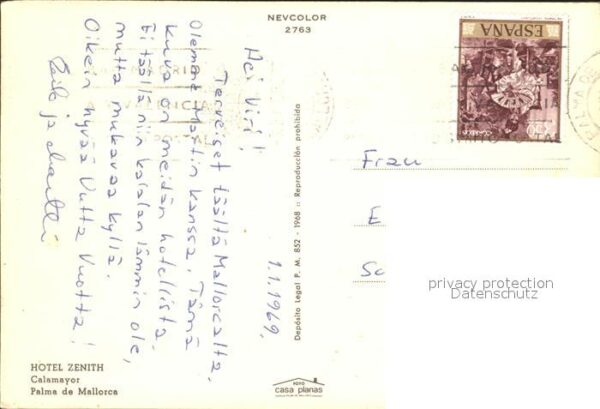 NEVCOLOR
2763
ESPAÑA
CORREOS
PALMA DE
1.1.1969.
Hei Viri!
Terveiset täältä Mallorcalta.
Olemme Martin kanssa. Tämä
kuva on meidän hotellista.
Ei täällä niin kaialan lämmin ole,
mutta mukavaa kyllä.
Oikein hyvää Uutta Vuotta!
ja
Frau
E
Sc
Depósito Legal P. M. 852 - 1968 :: Reproducción prohibida
HOTEL ZENITH
Calamayor
Palma de Mallorca
FOTO
casa planas
privacy protection
Datenschutz